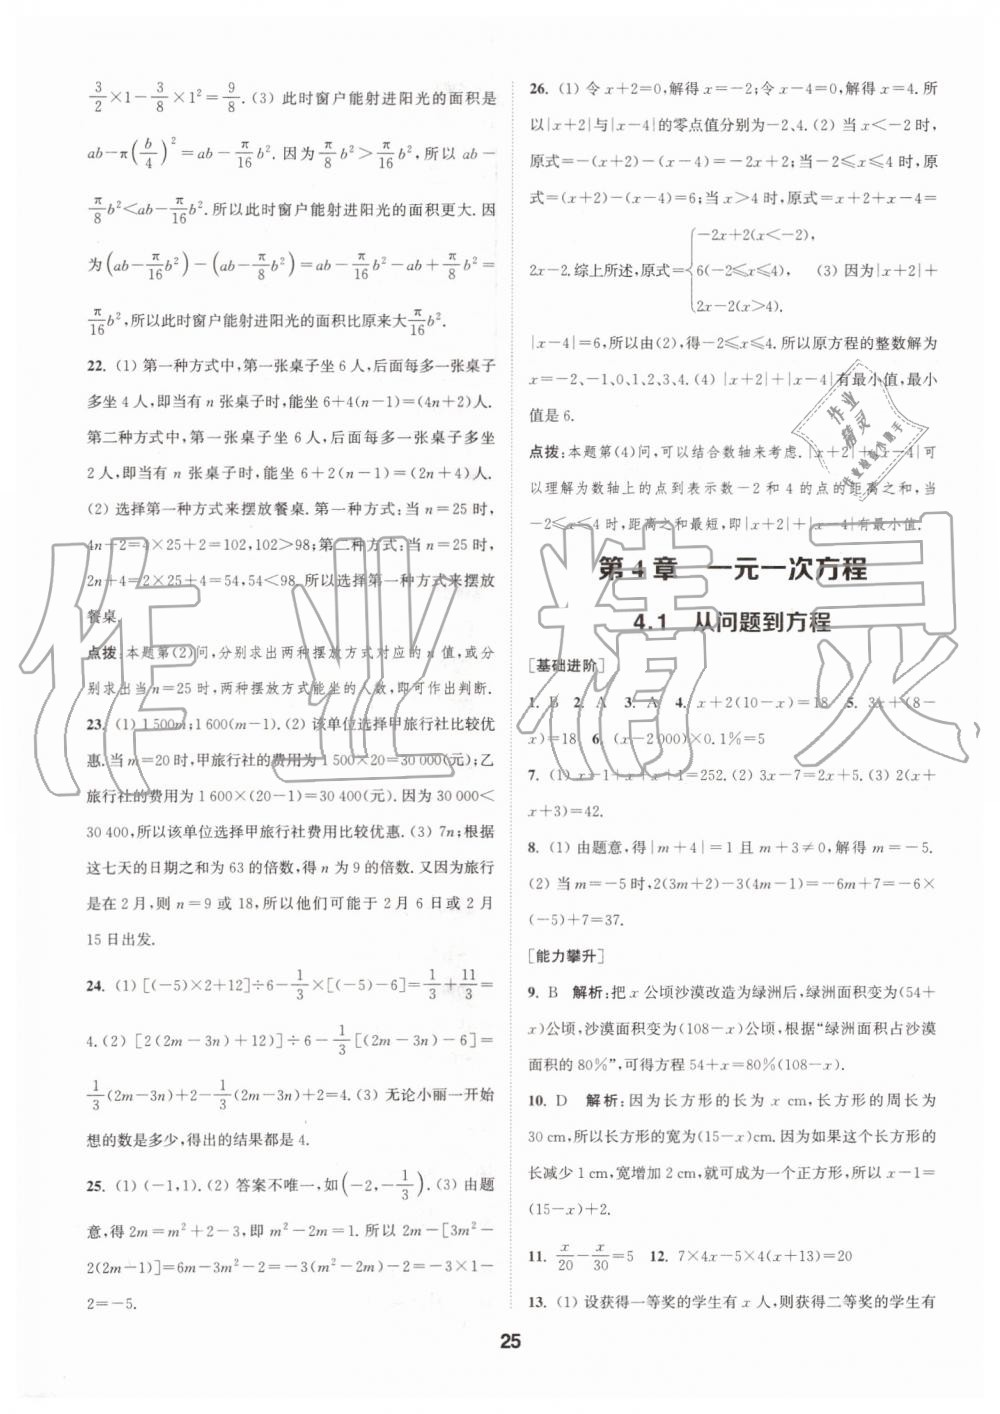 3/2×1－3/8×1²=9/8.(3) 此时窗户能射进阳光的面积是
ab－π(b/4)²=ab－π/16b².因为π/8b²>π/16b²,所以 ab－
π/8b²<ab－π/16b².所以此时窗户能射进阳光的面积更大.因
为(ab－π/16b²)－(ab－π/8b²)=ab－π/16b²－ab＋π/8b²=
π/16b²,所以此时窗户能射进阳光的面积比原来大π/16b².
22. (1) 第一种方式中,第一张桌子坐 6 人,后面每多一张桌子
多坐 4 人,即当有 n 张桌子时,能坐 6＋4(n－1)=(4n＋2)人.
第二种方式中,第一张桌子坐 6 人,后面每多一张桌子多坐
2 人,即当有 n 张桌子时,能坐 6＋2(n－1)=(2n＋4)人.
(2) 选择第一种方式来摆放餐桌.第一种方式:当 n=25 时,
4n＋2=4×25＋2=102,102>98;第二种方式:当 n=25 时,
2n＋4=2×25＋4=54,54<98.所以选择第一种方式来摆放
餐桌.
点拨:本题第(2)问,分别求出两种摆放方式对应的 n 值,或分
别求出当 n=25 时,两种摆放方式能坐的人数,即可作出判断.
23. (1) 1 500m;1 600(m－1).(2) 该单位选择甲旅行社比较优
惠.当 m=20 时,甲旅行社的费用为 1 500×20=30 000(元);乙
旅行社的费用为 1 600×(20－1)=30 400(元).因为 30 000<
30 400,所以该单位选择甲旅行社费用比较优惠.(3) 7n;根据
这七天的日期之和为 63 的倍数,得 n 为 9 的倍数.又因为旅行
是在 2 月,则 n=9 或 18,所以他们可能于 2 月 6 日或 2 月
15 日出发.
24. (1) [(－5)×2＋12]÷6－1/3×[(－5)－6]=1/3＋11/3=
4.(2) [2(2m－3n)＋12)]÷6－1/3[(2m－3n)－6]=
1/3(2m－3n)＋2－1/3(2m－3n)＋2=4.(3) 无论小丽一开始
想的数是多少,得出的结果都是 4.
25. (1) (－1,1).(2) 答案不唯一,如(－2,－1/3).(3) 由题
意,得 2m=m²＋2－3,即 m²－2m=1.所以 2m－[3m²－
2(2m－1)]=6m－3m²－2=－3(m²－2m)－2=－3×1－
2=－5.
26. (1) 令 x＋2=0,解得 x=－2;令 x－4=0,解得 x=4.所
以|x＋2|与|x－4|的零点值分别为－2、4.(2) 当 x<－2 时,
原式=－(x＋2)－(x－4)=－2x＋2;当－2≤x≤4 时,原
式=(x＋2)－(x－4)=6;当 x>4 时,原式=x＋2＋x－4=
2x－2.综上所述,原式={－2x＋2(x<－2), 6(－2≤x≤4), 2x－2(x>4). (3) 因为|x＋2|＋
|x－4|=6,所以由(2),得－2≤x≤4.所以原方程的整数解为
x=－2、－1、0、1、2、3、4.(4) |x＋2|＋|x－4|有最小值,最小
值是 6.
点拨:本题第(4)问,可以结合数轴来考虑.|x＋2|＋|x－4|可
以理解为数轴上的点到表示数－2 和 4 的点的距离之和,当
－2≤x≤4 时,距离之和最短,即|x＋2|＋|x－4|有最小值.
第 4 章　一元一次方程
4.1　从问题到方程
[基础进阶]
1. B　2. A　3. A　4. x＋2(10－x)=18　5. 3x＋(8－
x)=18　6. (x－2 000)×0.1%=5
7. (1) x－1＋x＋x＋1=252. (2) 3x－7=2x＋5. (3) 2(x＋
x＋3)=42.
8. (1) 由题意,得|m＋4|=1 且 m＋3≠0,解得 m=－5.
(2) 当 m=－5 时,2(3m＋2)－3(4m－1)=－6m＋7=－6×
(－5)＋7=37.
[能力攀升]
9. B　解析:把 x 公顷沙漠改造为绿洲后,绿洲面积变为(54＋
x)公顷,沙漠面积变为(108－x)公顷,根据“绿洲面积占沙漠
面积的 80%”,可得方程 54＋x=80%(108－x).
10. D　解析:因为长方形的长为 x cm,长方形的周长为
30 cm,所以长方形的宽为(15－x)cm.因为如果这个长方形的
长减少 1 cm,宽增加 2 cm,就可成为一个正方形,所以 x－1=
(15－x)＋2.
11. x/20－x/30=5　12. 7×4x－5×4(x＋13)=20
13. (1) 设获得一等奖的学生有 x 人,则获得二等奖的学生有
25
作业精灵
作业
精灵